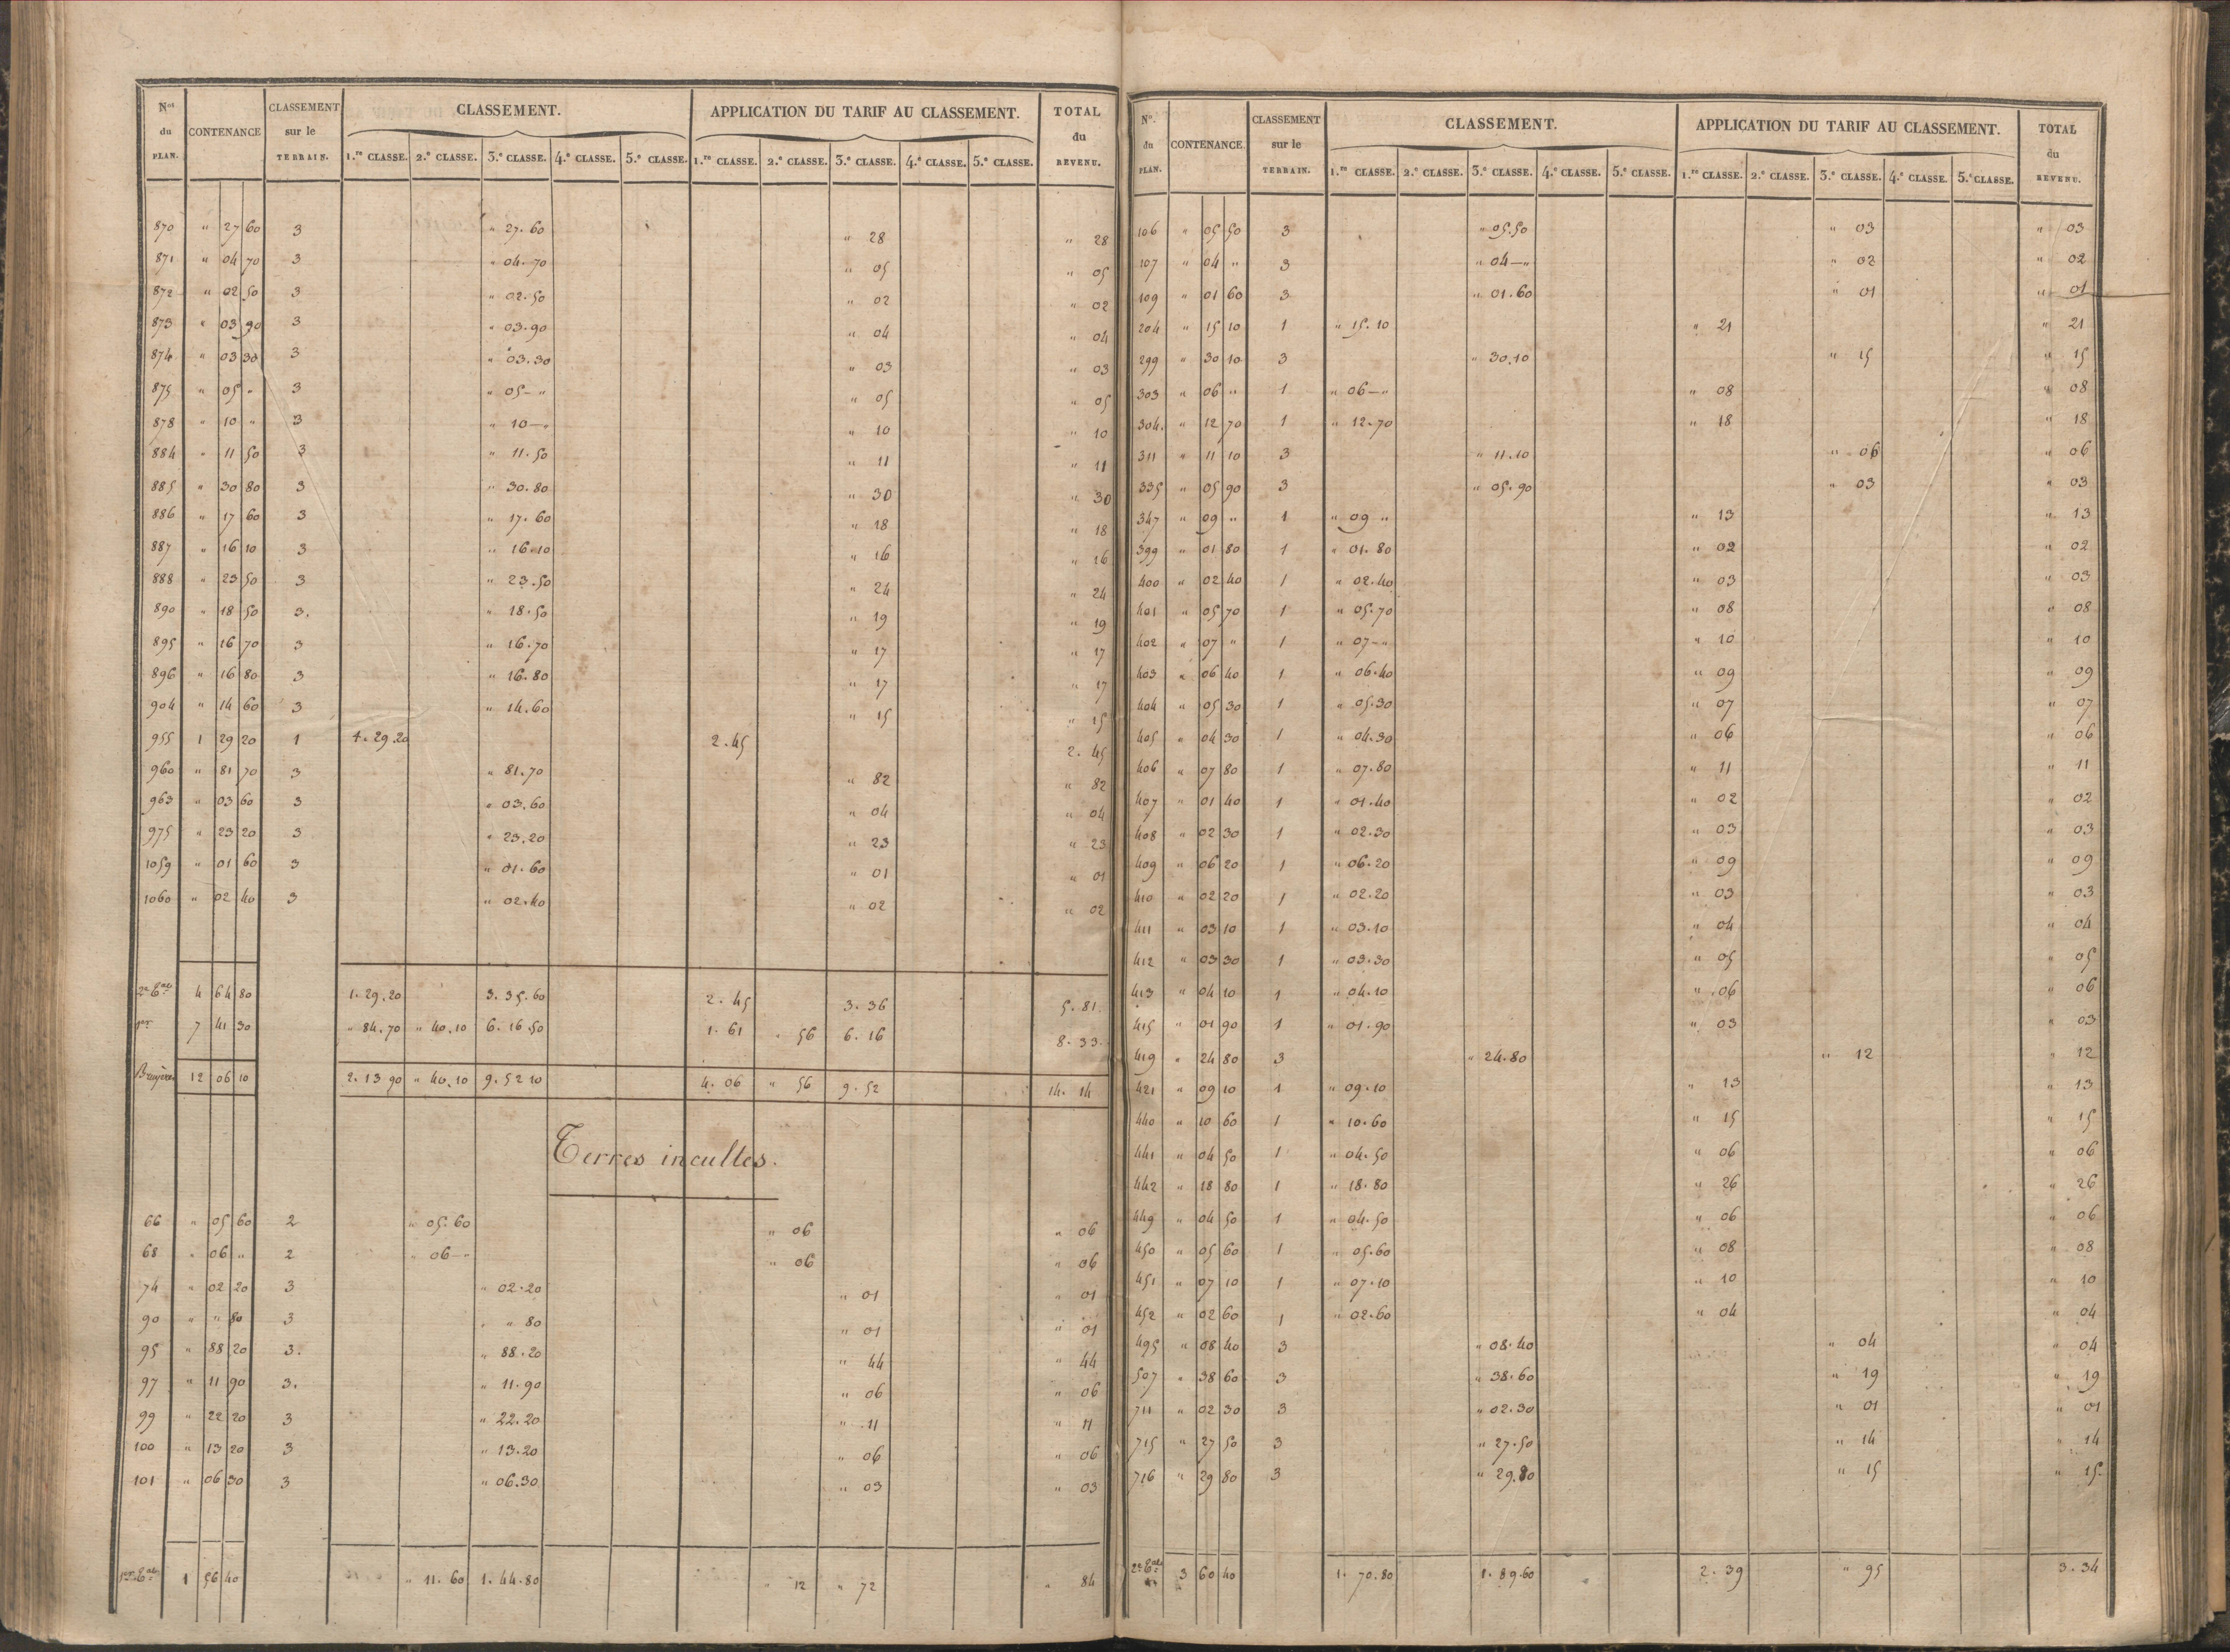 Nos du PLAN. CONTENANCE CLASSEMENT sur le TERRAIN. CLASSEMENT. APPLICATION DU TARIF AU CLASSEMENT. TOTAL du REVENU.
1.re CLASSE. 2.e CLASSE. 3.e CLASSE. 4.e CLASSE. 5.e CLASSE. 1.re CLASSE. 2.e CLASSE. 3.e CLASSE. 4.e CLASSE. 5.e CLASSE.
870 " 27 60 3 " 27.60 " 28 " 28
871 " 04 70 3 " 04.70 " 05 " 05
872 " 02 50 3 " 02.50 " 02 " 02
873 " 03 90 3 " 03.90 " 04 " 04
874 " 03 30 3 " 03.30 " 03 " 03
875 " 05 " 3 " 05-" " 05 " 05
878 " 10 " 3 " 10-" " 10 " 10
884 " 11 50 3 " 11.50 " 11 " 11
885 " 30 80 3 " 30.80 " 30 " 30
886 " 17 60 3 " 17.60 " 18 " 18
887 " 16 10 3 " 16.10 " 16 " 16
888 " 23 50 3 " 23.50 " 24 " 24
890 " 18 50 3. " 18.50 " 19 " 19
895 " 16 70 3 " 16.70 " 17 " 17
896 " 16 80 3 " 16.80 " 17 " 17
904 " 14 60 3 " 14.60 " 15 " 15
955 1 29 20 1 1.29.20 2.45 2.45
960 " 81 70 3 " 81.70 " 82 " 82
963 " 03 60 3 " 03.60 " 04 " 04
975 " 23 20 3 " 23.20 " 23 " 23
1059 " 01 60 3 " 01.60 " 01 " 01
1060 " 02 40 3 " 02.40 " 02 " 02
2e Cal 4 64 80 1.29.20 3.35.60 2.45 3.36 5.81.
1er 7 41 30 " 84.70 " 40.10 6.16.50 1.61 " 56 6.16 8.33.
Bruyères 12 06 10 2.13 90 " 40.10 9.52 10 4.06 " 56 9.52 14.14
Terres incultes.
66 " 05 60 2 " 05.60 " 06 " 06
68 " 06 " 2 " 06-" " 06 " 06
74 " 02 20 3 " 02.20 " 01 " 01
90 " " 80 3 " " 80 " 01 " 01
95 " 88 20 3. " 88.20 " 44 " 44
97 " 11 90 3. " 11.90 " 06 " 06
99 " 22 20 3 " 22.20 " 11 " 11
100 " 13 20 3 " 13.20 " 06 " 06
101 " 06 30 3 " 06.30 " 03 " 03
1er Cal 1 56 40 " 11.60 1.44.80 " 12 " 72 " 84
No. du PLAN. CONTENANCE. CLASSEMENT sur le TERRAIN. CLASSEMENT. APPLICATION DU TARIF AU CLASSEMENT. TOTAL du REVENU.
1.re CLASSE. 2.e CLASSE. 3.e CLASSE. 4.e CLASSE. 5.e CLASSE. 1.re CLASSE. 2.e CLASSE. 3.e CLASSE. 4.e CLASSE. 5.e CLASSE.
106 " 05 50 3 " 05.50 " 03 " 03
107 " 04 " 3 " 04-" " 02 " 02
109 " 01 60 3 " 01.60 " 01 " 01
204 " 15 10 1 " 15.10 " 21 " 21
299 " 30 10 3 " 30.10 " 15 " 15
303 " 06 " 1 " 06-" " 08 " 08
304. " 12 70 1 " 12.70 " 18 " 18
311 " 11 10 3 " 11.10 " 06 " 06
335 " 05 90 3 " 05.90 " 03 " 03
347 " 09 " 1 " 09 " " 13 " 13
399 " 01 80 1 " 01.80 " 02 " 02
400 " 02 40 1 " 02.40 " 03 " 03
401 " 05 70 1 " 05.70 " 08 " 08
402 " 07 " 1 " 07-" " 10 " 10
403 " 06 40 1 " 06.40 " 09 " 09
404 " 05 30 1 " 05.30 " 07 " 07
405 " 04 30 1 " 04.30 " 06 " 06
406 " 07 80 1 " 07.80 " 11 " 11
407 " 01 40 1 " 01.40 " 02 " 02
408 " 02 30 1 " 02.30 " 03 " 03
409 " 06 20 1 " 06.20 " 09 " 09
410 " 02 20 1 " 02.20 " 03 " 03
411 " 03 10 1 " 03.10 " 04 " 04
412 " 03 30 1 " 03.30 " 05 " 05
413 " 04 10 1 " 04.10 " 06 " 06
415 " 01 90 1 " 01.90 " 03 " 03
419 " 24 80 3 " 24.80 " 12 " 12
421 " 09 10 1 " 09.10 " 13 " 13
440 " 10 60 1 " 10.60 " 15 " 15
441 " 04 50 1 " 04.50 " 06 " 06
442 " 18 80 1 " 18.80 " 26 " 26
449 " 04 50 1 " 04.50 " 06 " 06
450 " 05 60 1 " 05.60 " 08 " 08
451 " 07 10 1 " 07.10 " 10 " 10
452 " 02 60 1 " 02.60 " 04 " 04
495 " 08 40 3 " 08.40 " 04 " 04
507 " 38 60 3 " 38.60 " 19 " 19
711 " 02 30 3 " 02.30 " 01 " 01
715 " 27 50 3 " 27.50 " 14 " 14
716 " 29 80 3 " 29.80 " 15 " 15.
2e Cal 3 60 40 1.70.80 1.89.60 2.39 " 95 3.34